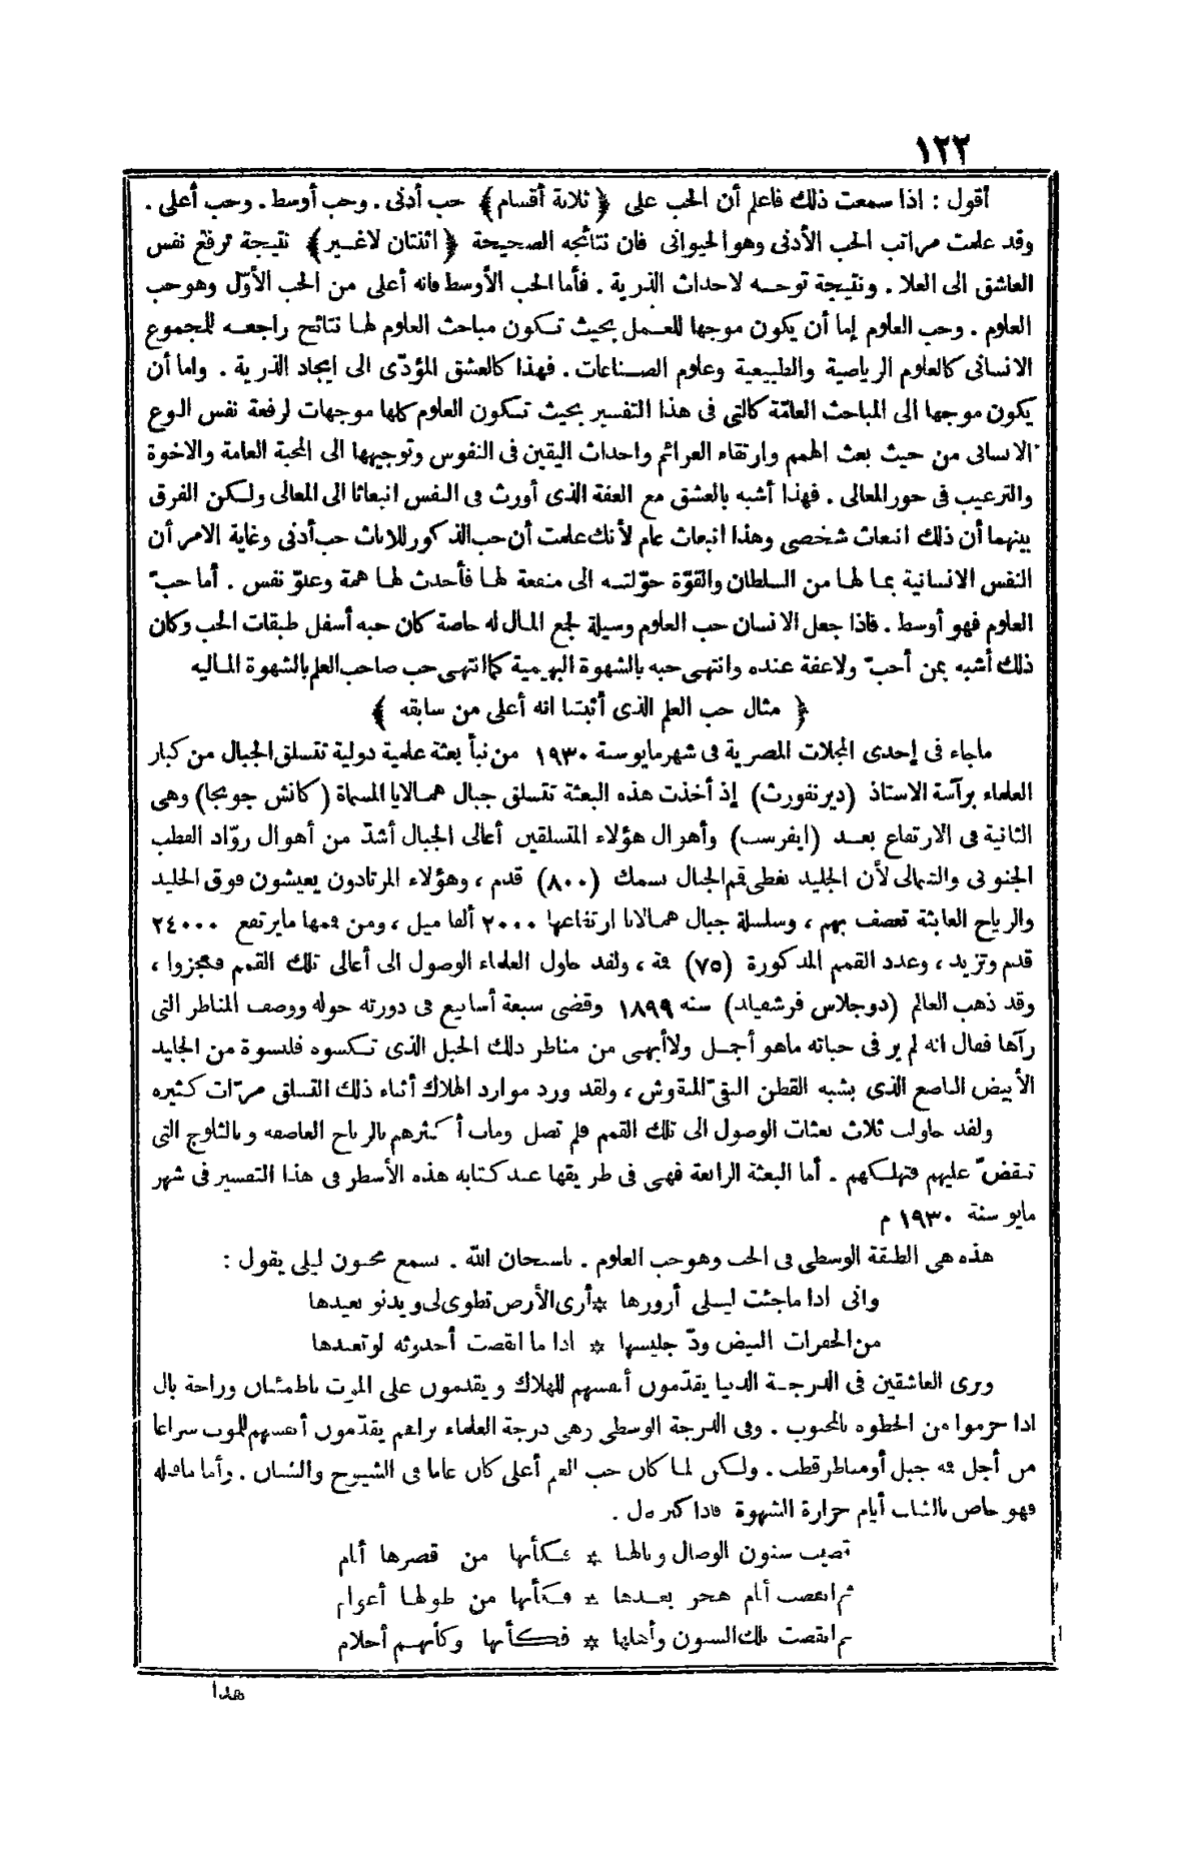 ١٢٢
أقول : اذا سمعت ذلك فاعلم أن الحب على ﴿ ثلاثة أقسام ﴾ حب أدنى . وحب أوسط . وحب أعلى .
وقد علمت مراتب الحب الأدنى وهو الحيوانى فان نتائجه الصحيحة ﴿ اثنتان لاغير ﴾ نتيجة ترفع نفس
العاشق الى العلا . ونتيجة توجه لاحداث الذرية . فأما الحب الأوسط فانه أعلى من الحب الأوّل وهو حب
العلوم . وحب العلوم إما أن يكون موجها للعمل بحيث تكون مباحث العلوم لها نتائج راجعه للمجموع
الانسانى كالعلوم الرياضية والطبيعية وعلوم الصناعات . فهذا كالعشق المؤدّى الى ايجاد الذرية . واما أن
يكون موجها الى المباحث العامّة كالتى فى هذا التفسير بحيث تكون العلوم كلها موجهات لرفعة نفس النوع
الانسانى من حيث بعث الهمم وارتقاء العزائم واحداث اليقين فى النفوس وتوجيهها الى المحبة العامة والاخوة
والترغيب فى حوز المعالى . فهذا أشبه بالعشق مع العفة الذى أورث فى النفس انبعاثا الى المعالى ولكن الفرق
بينهما أن ذلك انبعاث شخصى وهذا انبعاث عام لأنك علمت أن حب الذكور للاناث حب أدنى وغاية الامر أن
النفس الانسانية بما لها من السلطان والقوّة حوّلته الى منفعة لها فأحدث لها همة وعلوّ نفس . أما حبّ
العلوم فهو أوسط . فاذا جعل الانسان حب العلوم وسيلة لجمع المال له خاصة كان حبه أسفل طبقات الحب وكان
ذلك أشبه بمن أحبّ ولاعفة عنده وانتهى حبه بالشهوة البهيمية كما انتهى حب صاحب العلم بالشهوة الماليه
﴿ مثال حب العلم الذى أثبتنا انه أعلى من سابقه ﴾
ماجاء فى إحدى المجلات المصرية فى شهر مايو سنة ١٩٣٠ من نبأ بعثة علمية دولية تتسلق الجبال من كبار
العلماء برآسة الاستاذ (ديرنفورث) إذ أخذت هذه البعثة تتسلق جبال همالايا المسماة (كانش جونجا) وهى
الثانية فى الارتفاع بعد (ايفرست) وأهوال هؤلاء المتسلقين أعالى الجبال أشدّ من أهوال روّاد القطب
الجنوبى والشمالى لأن الجليد يغطى قم الجبال بسمك (٨٠٠) قدم ، وهؤلاء المرتادون يعيشون فوق الجليد
والرياح العابثة تعصف بهم ، وسلسلة جبال همالايا ارتفاعها ٢٠٠٠ ألفا ميل ، ومن قمها مايرتفع ٢٤٠٠٠
قدم وتزيد ، وعدد القمم المذكورة (٧٥) قمة ، ولقد حاول العلماء الوصول الى أعالى تلك القمم فعجزوا ،
وقد ذهب العالم (دوجلاس فرشفيلد) سنه ١٨٩٩ وقضى سبعة أسابيع فى دورته حوله ووصف المناظر التى
رآها فقال انه لم ير فى حياته ماهو أجمل ولاأبهى من مناظر ذلك الجبل الذى تكسوه قلنسوة من الجليد
الأبيض الناصع الذى يشبه القطن النقىّ المنفوش ، ولقد ورد موارد الهلاك أثناء ذلك التسلق مرّات كثيره
ولقد حاولت ثلاث بعثات الوصول الى تلك القمم فلم تصل ومات أكثرهم بالرياح العاصفه وبالثلوج التى
تنقضّ عليهم فتهلكهم . أما البعثة الرابعة فهى فى طريقها عند كتابه هذه الأسطر فى هذا التفسير فى شهر
مايو سنة ١٩٣٠ م
هذه هى الطبقة الوسطى فى الحب وهو حب العلوم . ياسبحان الله . نسمع مجنون ليلى يقول :
وانى اذا ماجئت ليلى أزورها * أرى الأرض تطوى لى ويدنو بعيدها
من الخفرات البيض ودّ جليسها * اذا ما انقضت أحدوثه لو تعيدها
ونرى العاشقين فى الدرجة الدنيا يقدّمون أنفسهم للهلاك ويقدمون على الموت باطمئنان وراحة بال
اذا حرموا من الحظوه بالمحبوب . وفى الدرجة الوسطى وهى درجة العلماء نراهم يقدّمون أنفسهم للموت سراعا
من أجل قمه جبل أومناظر قطب . ولكن لما كان حب العلم أعلى كان عاما فى الشيوخ والشبان . وأما ماقبله
فهو خاص بالشاب أيام حرارة الشهوة فاذا كبر قال .
تصبب سنون الوصال وبالهنا * فكأنها من قصرها أيام
ثم انقضت أيام هجر بعدها * فكأنها من طولها أعوام
ثم انقضت تلك السنون وأهلها * فكأنها وكأنهم أحلام
هذا